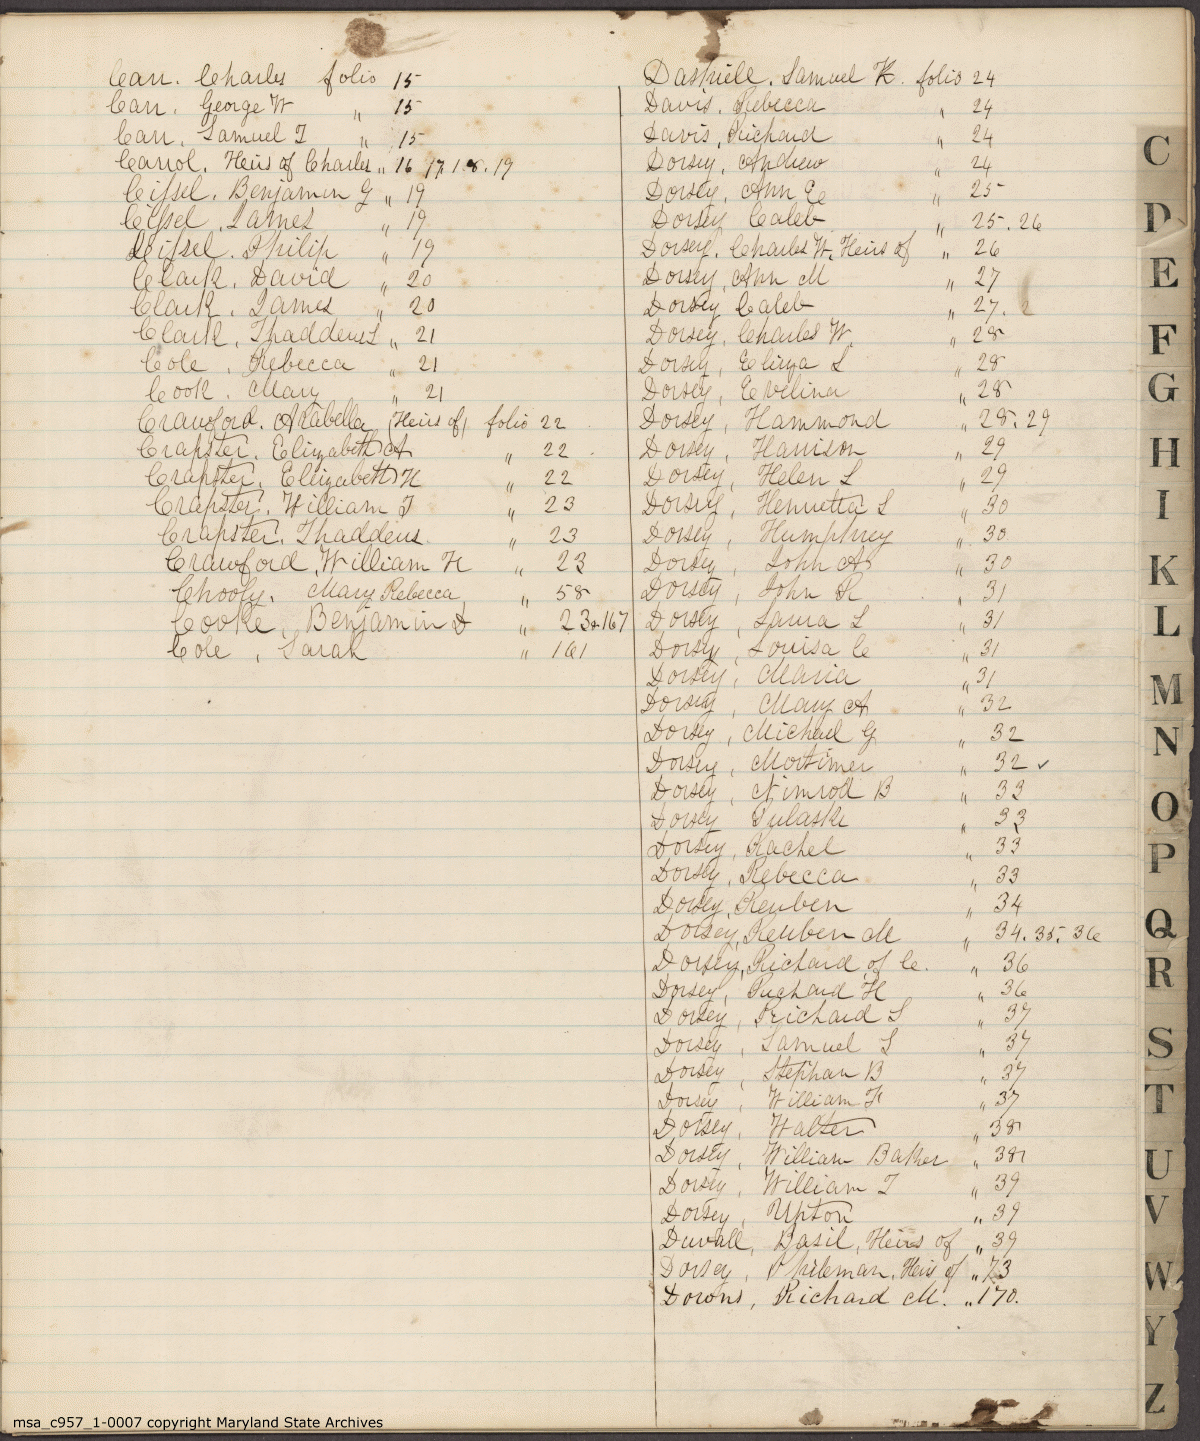 Carr. Charles folio 15
Carr. George W „ 15
Carr. Samuel T „ 15
Carrol. Heirs of Charles „ 16 17. 18. 19
Cissel. Benjamin G „ 19
Cissel. James „ 19
Cissel. Philip „ 19
Clark. David „ 20
Clark. James „ 20
Clark. Thaddeus S „ 21
Cole, Rebecca „ 21
Cook. Mary „ 21
Crawford. Arabella (Heirs of) folio 22
Crapster. Elizabeth A „ 22
Crapster. Elizabeth H „ 22
Crapster. William T „ 23
Crapster. Thaddeus „ 23
Crawford, William H „ 23
Mary Rebecca „ 58
Cooke, Benjamin D „ 23 & 167
Cole, Sarah „ 161
Dashiell. Samuel K. folio 24
Davis. Rebecca „ 24
Davis, Richard „ 24
Dorsey, Andrew „ 24
Dorsey, Ann E „ 25
Dorsey Caleb „ 25. 26
Dorsey. Charles W. Heirs of „ 26
Dorsey, Ann M „ 27
Dorsey Caleb „ 27.
Dorsey, Charles W. „ 28
Dorsey, Eliza S „ 28
Dorsey, Evelina „ 28
Dorsey, Hammond „ 28. 29
Dorsey, Harrison „ 29
Dorsey, Helen S „ 29
Dorsey, Henrietta S „ 30
Dorsey, Humphrey „ 30
Dorsey, John A „ 30
Dorsey, John R „ 31
Dorsey, Laura S „ 31
Dorsey, Louisa C „ 31
Dorsey, Maria „ 31
Dorsey, Mary A „ 32
Dorsey, Michael G „ 32
Dorsey, Mortimer „ 32 ✓
Dorsey, Nimrod B „ 33
Dorsey Pulaski „ 33
Dorsey, Rachel „ 33
Dorsey, Rebecca „ 33
Dorsey, Reuben „ 34
Dorsey, Reuben M „ 34. 35. 36
Dorsey, Richard of C. „ 36
Dorsey, Richard H „ 36
Dorsey, Richard S „ 37
Dorsey, Samuel S „ 37
Dorsey, Stephan B „ 37
Dorsey, William H „ 37
Dorsey, Walter „ 38
Dorsey, William Baker „ 38
Dorsey, William T „ 39
Dorsey, Upton „ 39
Duvall, Basil, Heirs of „ 39
Dorsey, Phileman, Heirs of „ 73
Downs, Richard M. „ 170.
C
D
E
F
G
H
I
K
L
M
N
O
P
Q
R
S
T
U
V
W
Y
Z
msa_c957_1-0007 copyright Maryland State Archives